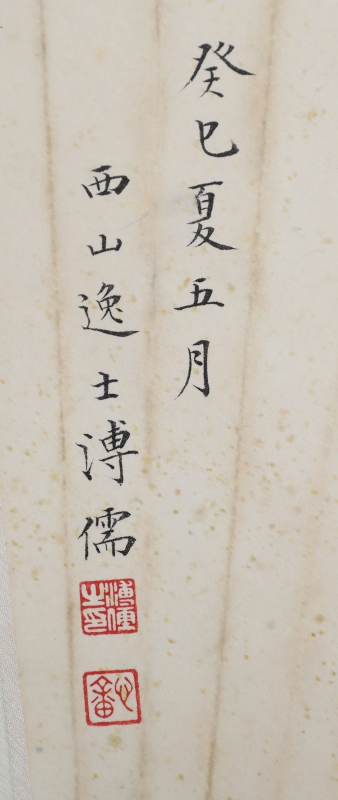 癸巳夏五月
西山逸士溥儒
溥儒之印
心畬